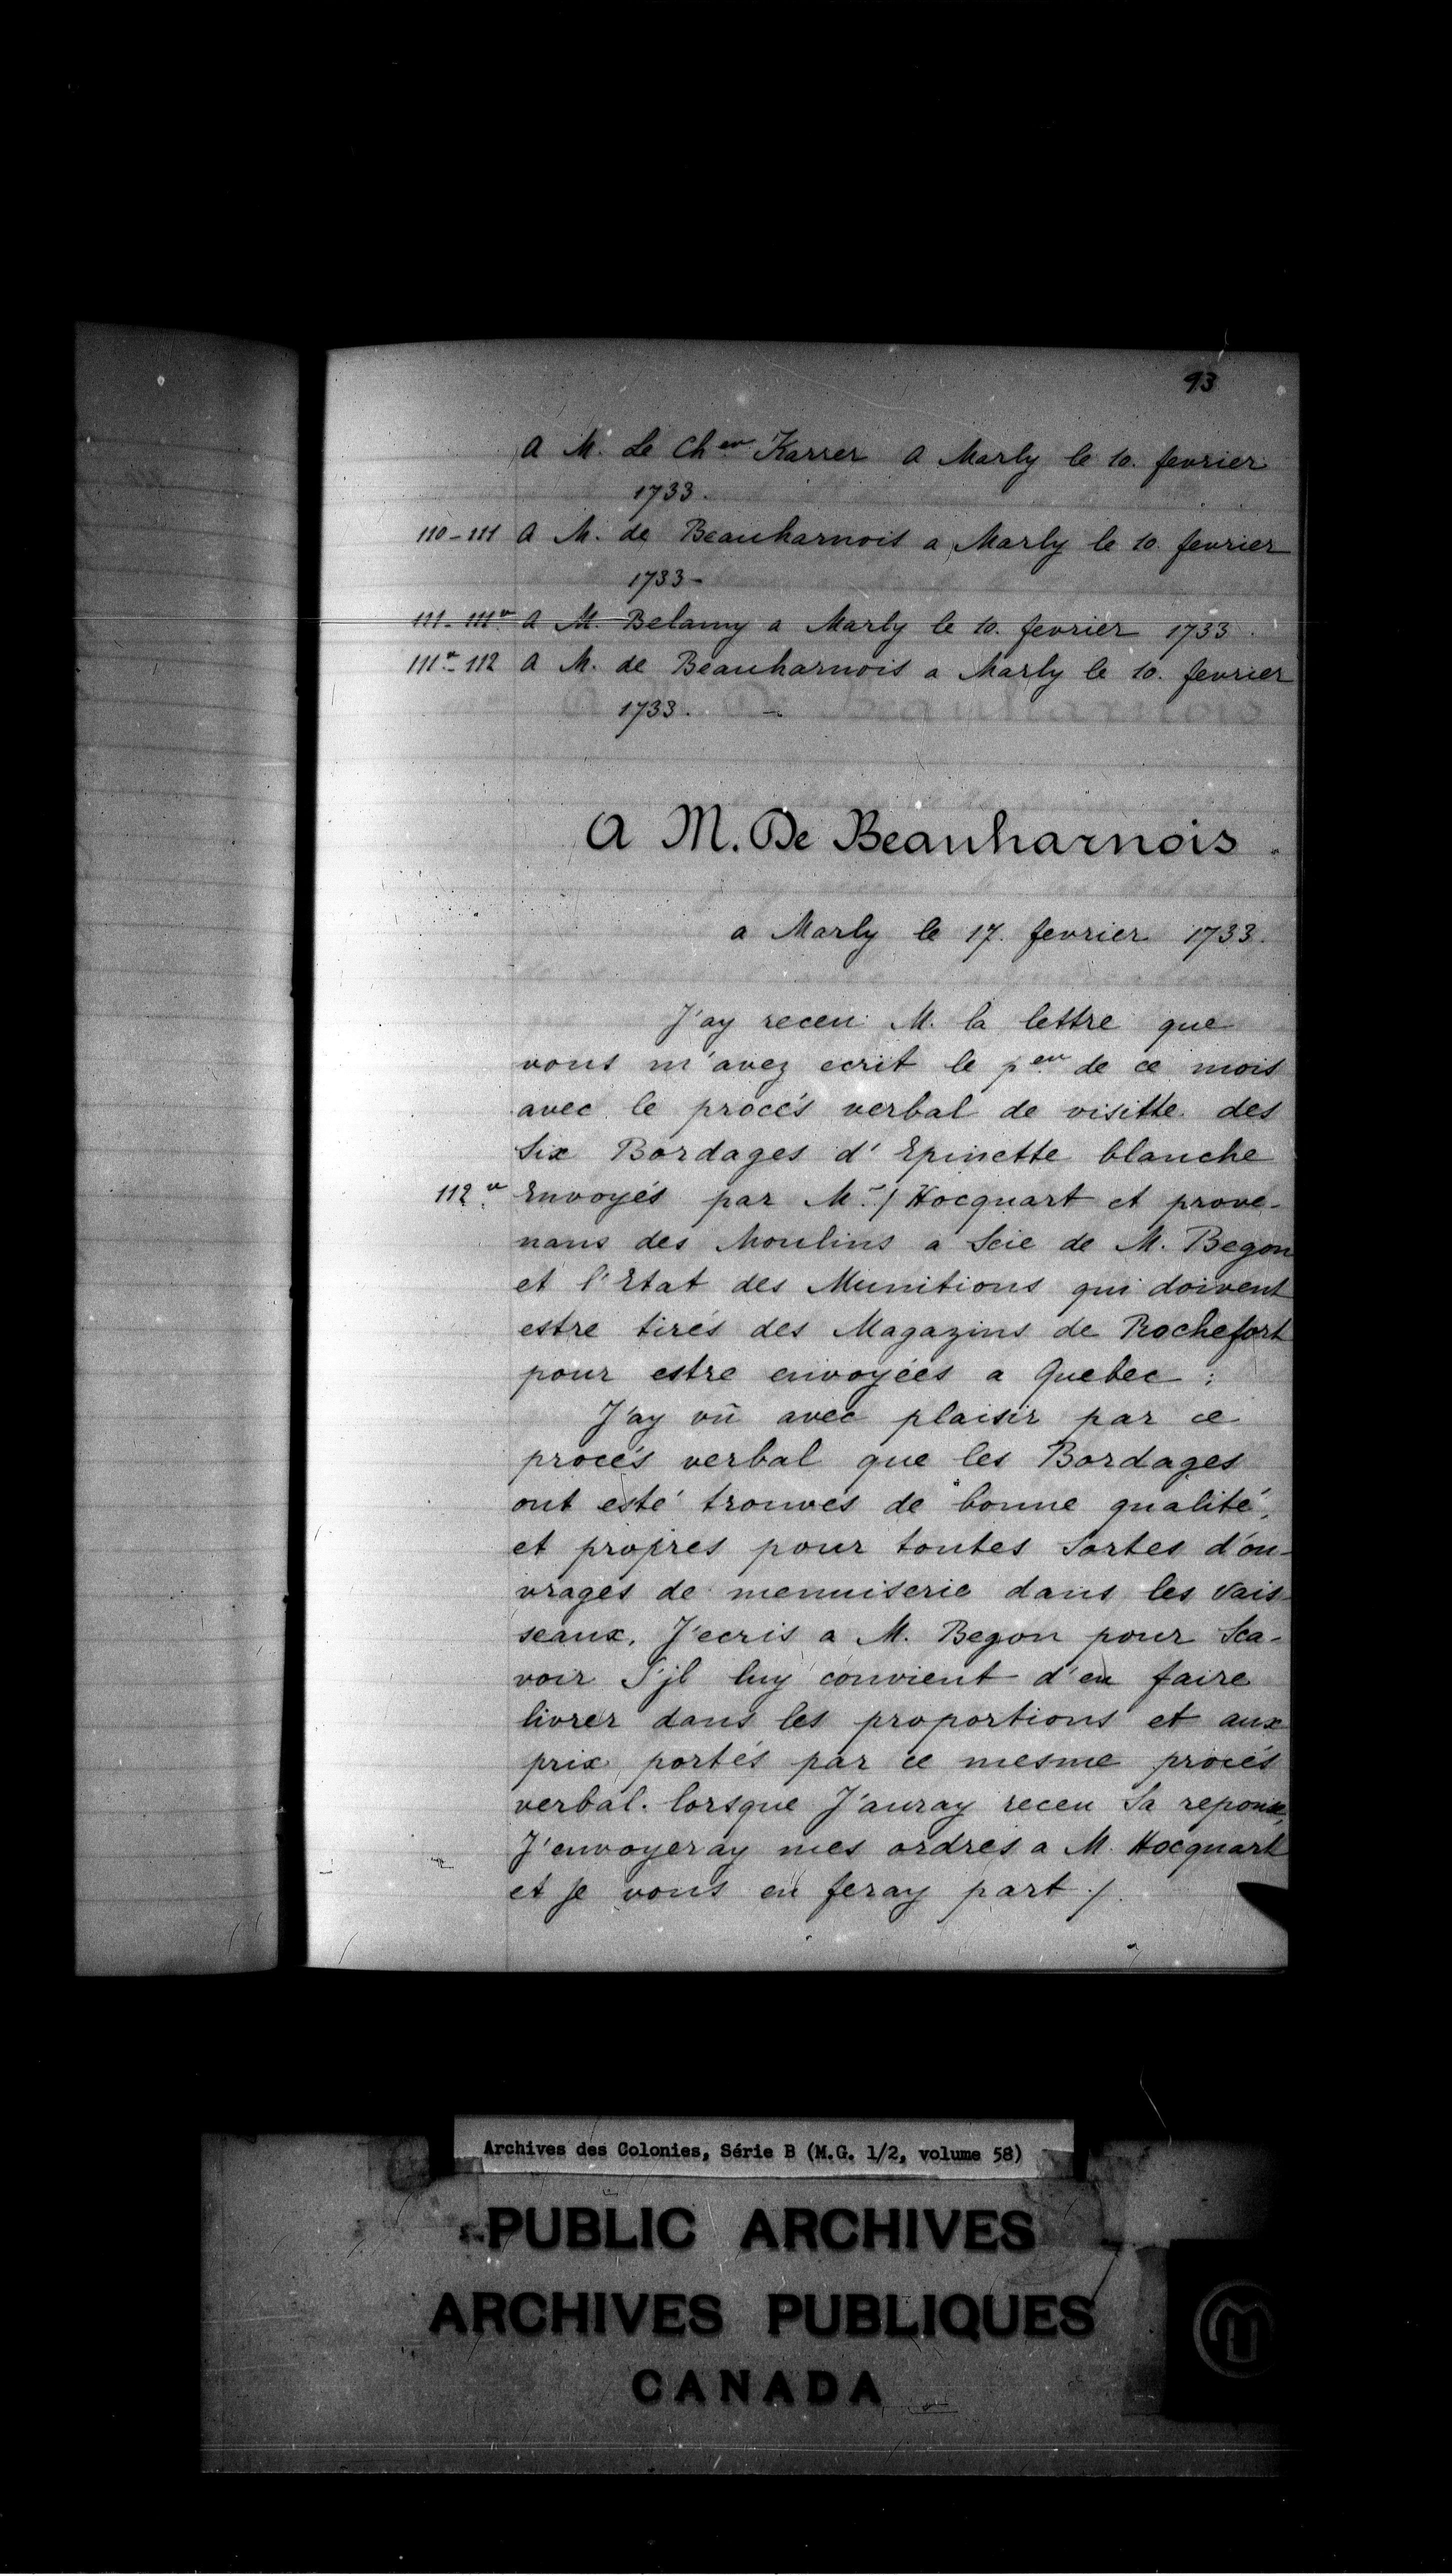 93
A M. Le Cher Karrer A Marly le 10. fevrier
1733.
110-111 A M. de Beauharnois a Marly le 10. fevrier
1733-
111-111v A M. Belamy a Marly le 10. fevrier 1733.
111v-112 A M. de Beauharnois a Marly le 10. fevrier
1733. -
A M. De Beauharnois.
a Marly le 17. fevrier 1733.
J'ay receu M. la lettre que
vous m'avez ecrit le per de ce mois
avec le procés verbal de visitte des
Six Bordages d'Epinette blanche
112v Envoyés par M./ Hocquart et prove-
nans des Moulins a Scie de M. Begon
et l'Etat des Munitions qui doivent
estre tirés des Magazins de Rochefort
pour estre envoyées a Quebec:
J'ay vû avec plaisir par ce
procés verbal que les Bordages
ont esté trouvés de bonne qualité,
et propres pour toutes Sortes d'ou-
vrages de menuiserie dans les Vais-
seaux. J'ecris a M. Begon pour Sca-
voir S'jl luy convient d'en faire
livrer dans les proportions et aux
prix portés par ce mesme procés
verbal. lorsque J'auray receu Sa reponse,
J'envoyeray mes ordres a M. Hocquart
et Je vous en feray part ./.
Archives des Colonies, Série B (M.G. 1/2, volume 58)
PUBLIC ARCHIVES
ARCHIVES PUBLIQUES
CANADA